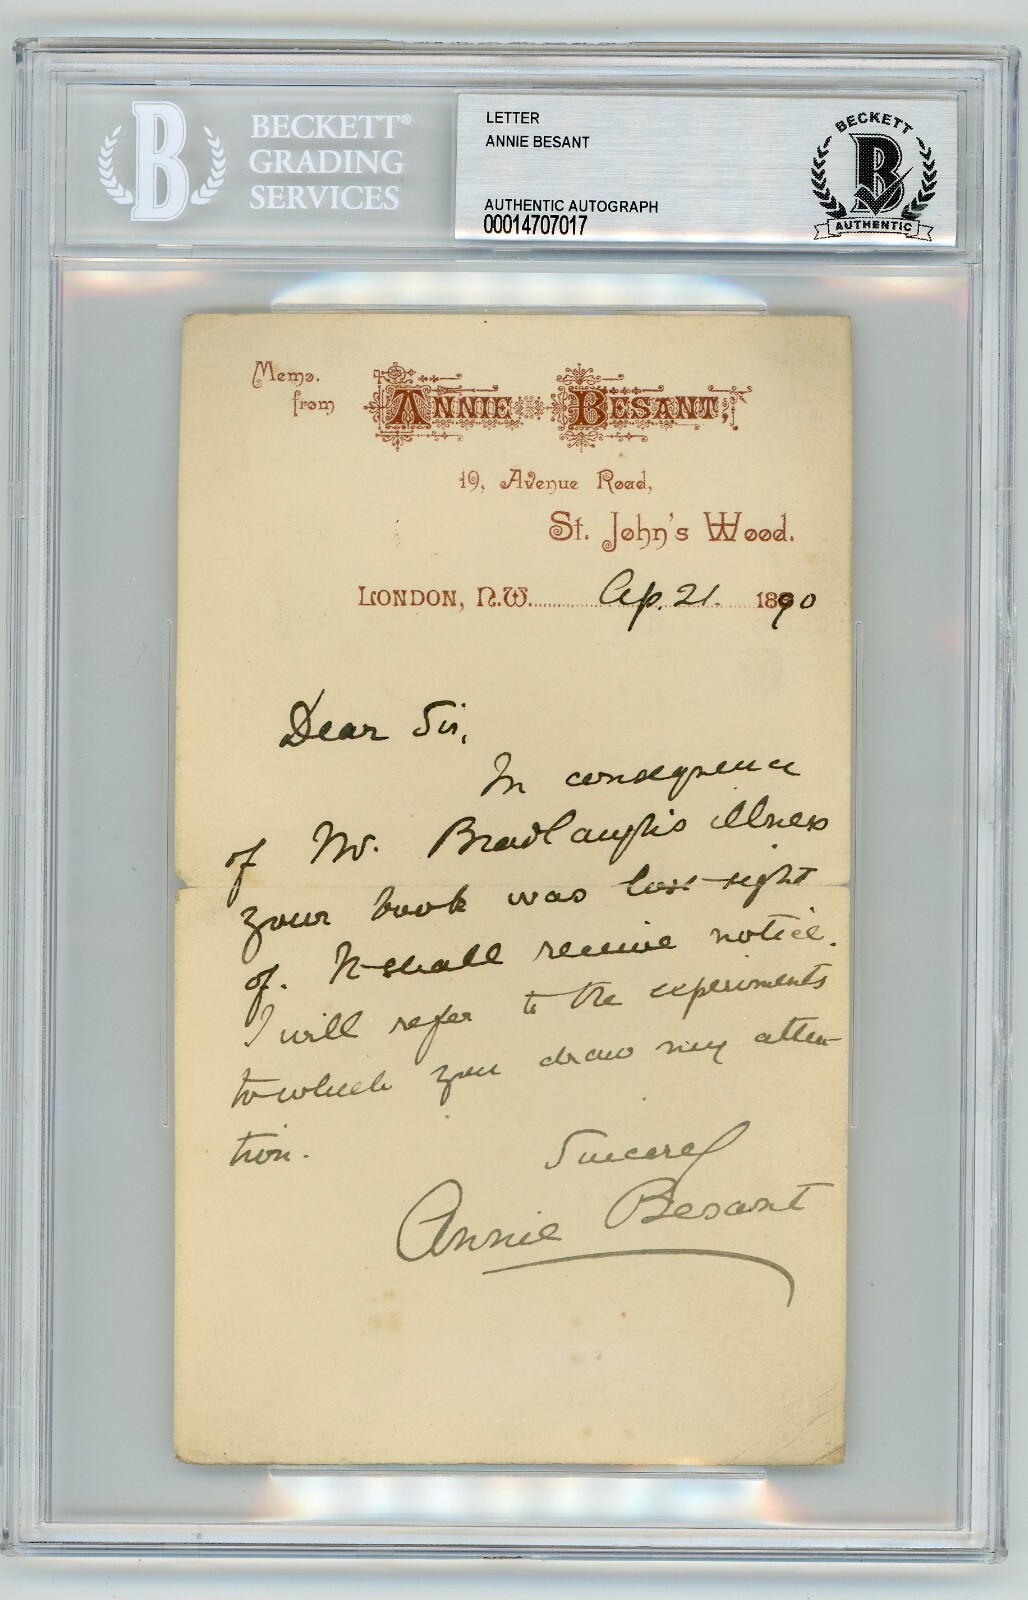 BECKETT®
GRADING
SERVICES
LETTER
ANNIE BESANT
AUTHENTIC AUTOGRAPH
00014707017
BECKETT
B
AUTHENTIC
Memo.
from
ANNIE BESANT,
19, Avenue Road,
St. John's Wood.
LONDON, N.W. Ap. 21. 1890
Dear Sir,
In consequence
of Mr. Bradlaugh's illness
your book was lost sight
of. It shall receive notice.
I will refer to the experiments
to which you draw my atten-
tion.
Sincerely
Annie Besant